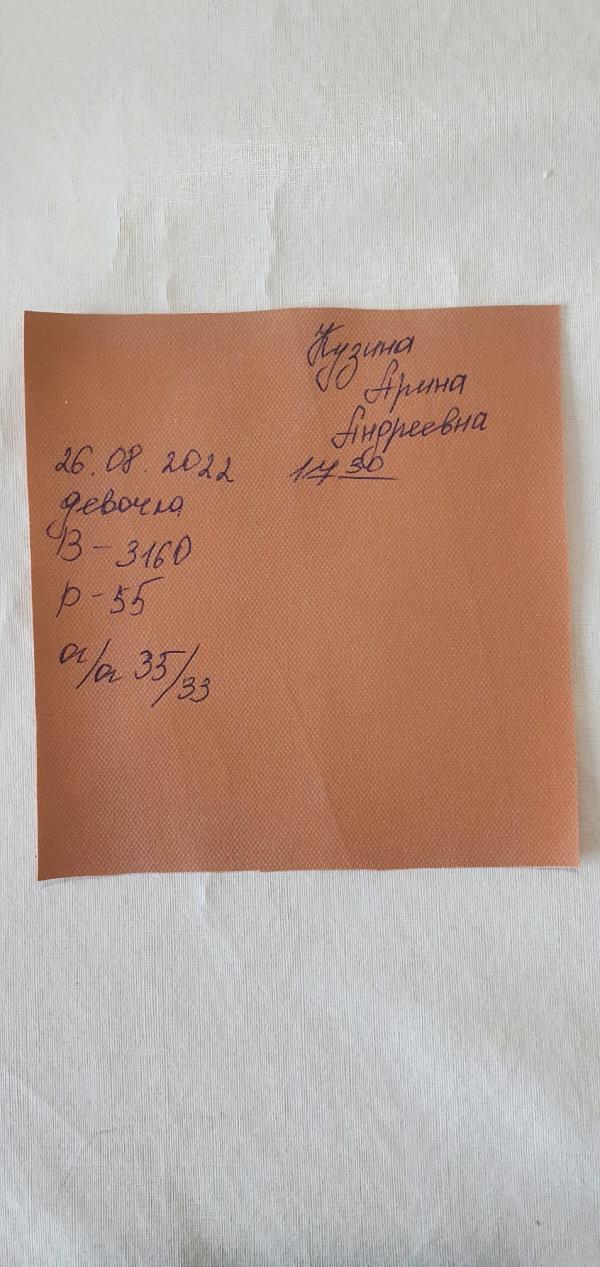 Кузина
Арина
Андреевна
17 30
26.08.2022
девочка
В - 3160
р - 55
а/а 35/33